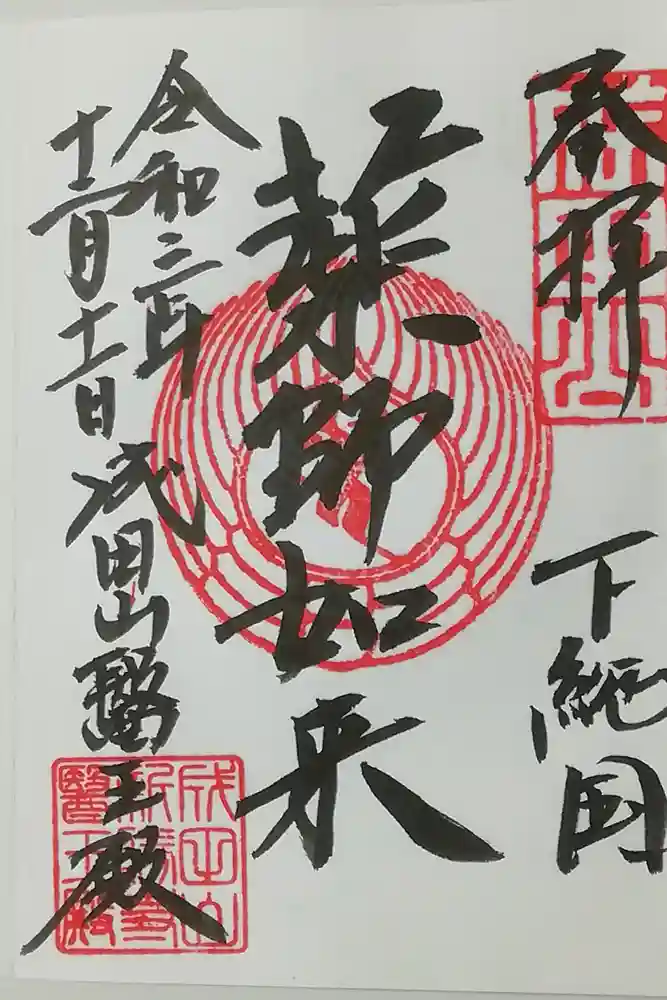 奉拝
下総国
薬師如来
令和三年
十二月十一日 成田山醫王殿
成田山
新勝寺
醫王殿